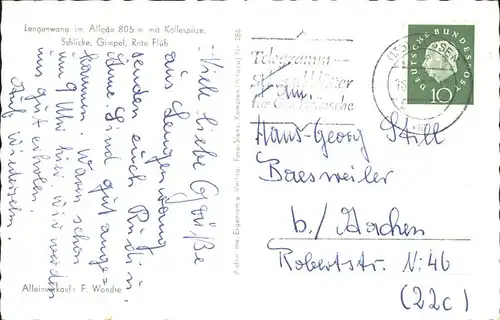 Lengenwang im Allgäu 805 m mit Köllespitze,
Schlicke, Gimpel, Rote Flüh
Viele liebe Grüße
aus Lengenwang
senden euch Rudi u.
Anne. Sind gut ange=
kommen. Waren schon
um 9 Uhr hier. Wir werden
uns gut erholen.
Auf Wiedersehn.
Alleinverkauf: F. Wondre
Telegramm
DEUTSCHE BUNDESPOST
10
Fam.
Hans-Georg Still
Baesweiler
b./ Aachen
Robertstr. N: 46
(22c)